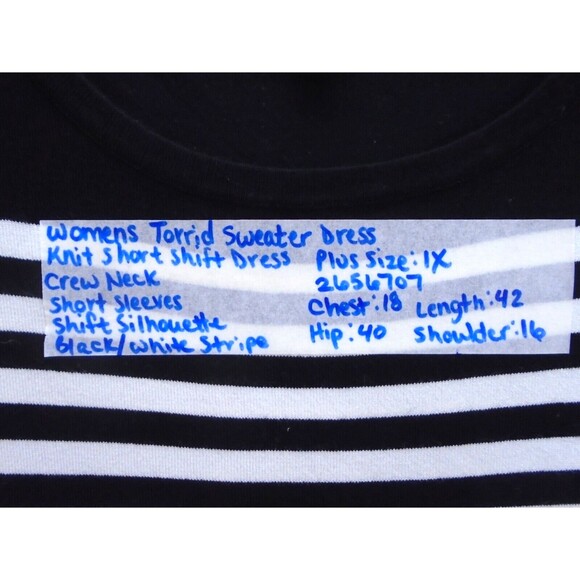 Womens Torrid Sweater Dress
Knit Short Shift Dress Plus Size: 1X
Crew Neck 2656707
Short Sleeves Chest: 18 Length: 42
Shift Silhouette Hip: 40 Shoulder: 16
Black/White Stripe